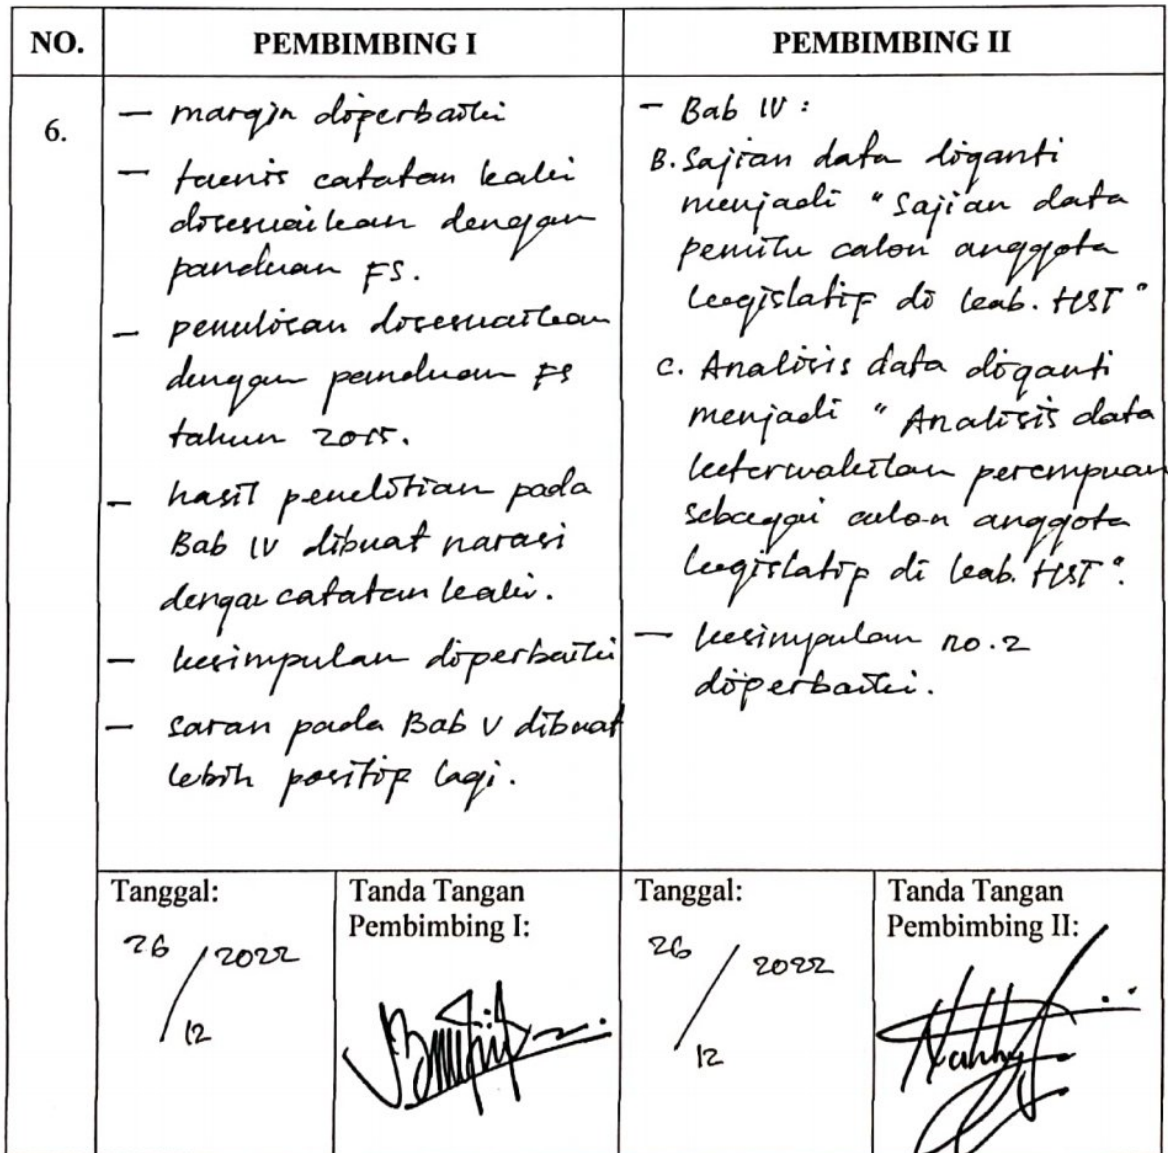 NO.
PEMBIMBING I
PEMBIMBING II
6.
— margin diperbaiki
— teknis catatan kaki
disesuaikan dengan
panduan FS.
— penulisan disesuaikan
dengan panduan FS
tahun 2015.
— hasil penelitian pada
Bab IV dibuat narasi
dengan catatan kaki.
— kesimpulan diperbaiki
— saran pada Bab V dibuat
lebih positip lagi.
- Bab IV :
B. Sajian data diganti
menjadi "Sajian data
pemilu calon anggota
legislatip di kab. HST"
C. Analisis data diganti
menjadi "Analisis data
keterwakilan perempuan
sebagai calon anggota
legislatip di kab. HST".
— kesimpulan no. 2
diperbaiki.
Tanggal:
26/12 2022
Tanda Tangan
Pembimbing I:
Tanggal:
26/12 2022
Tanda Tangan
Pembimbing II: